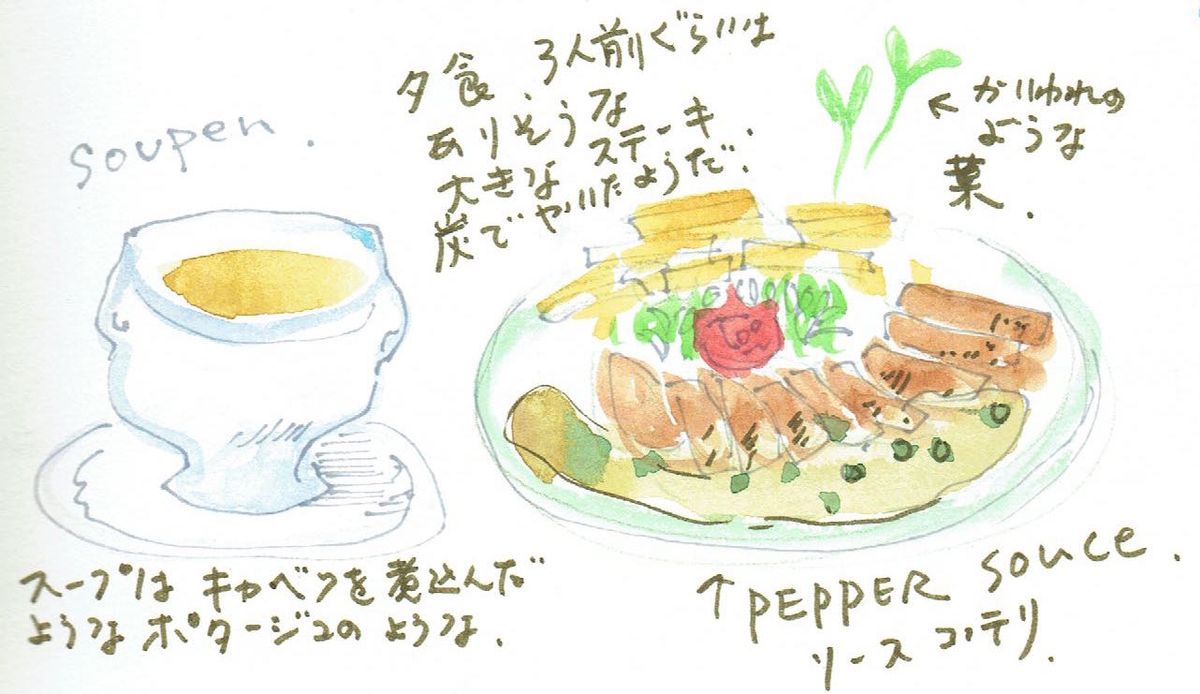 soupen.
夕食、3人前ぐらいは
ありそうな
大きなステーキ.
炭でやいたようだ.
← かいわれの
ような
葉.
スープはキャベツを煮込んだ
ようなポタージュのような.
↑ PEPPER souce.
ソースコッテリ.